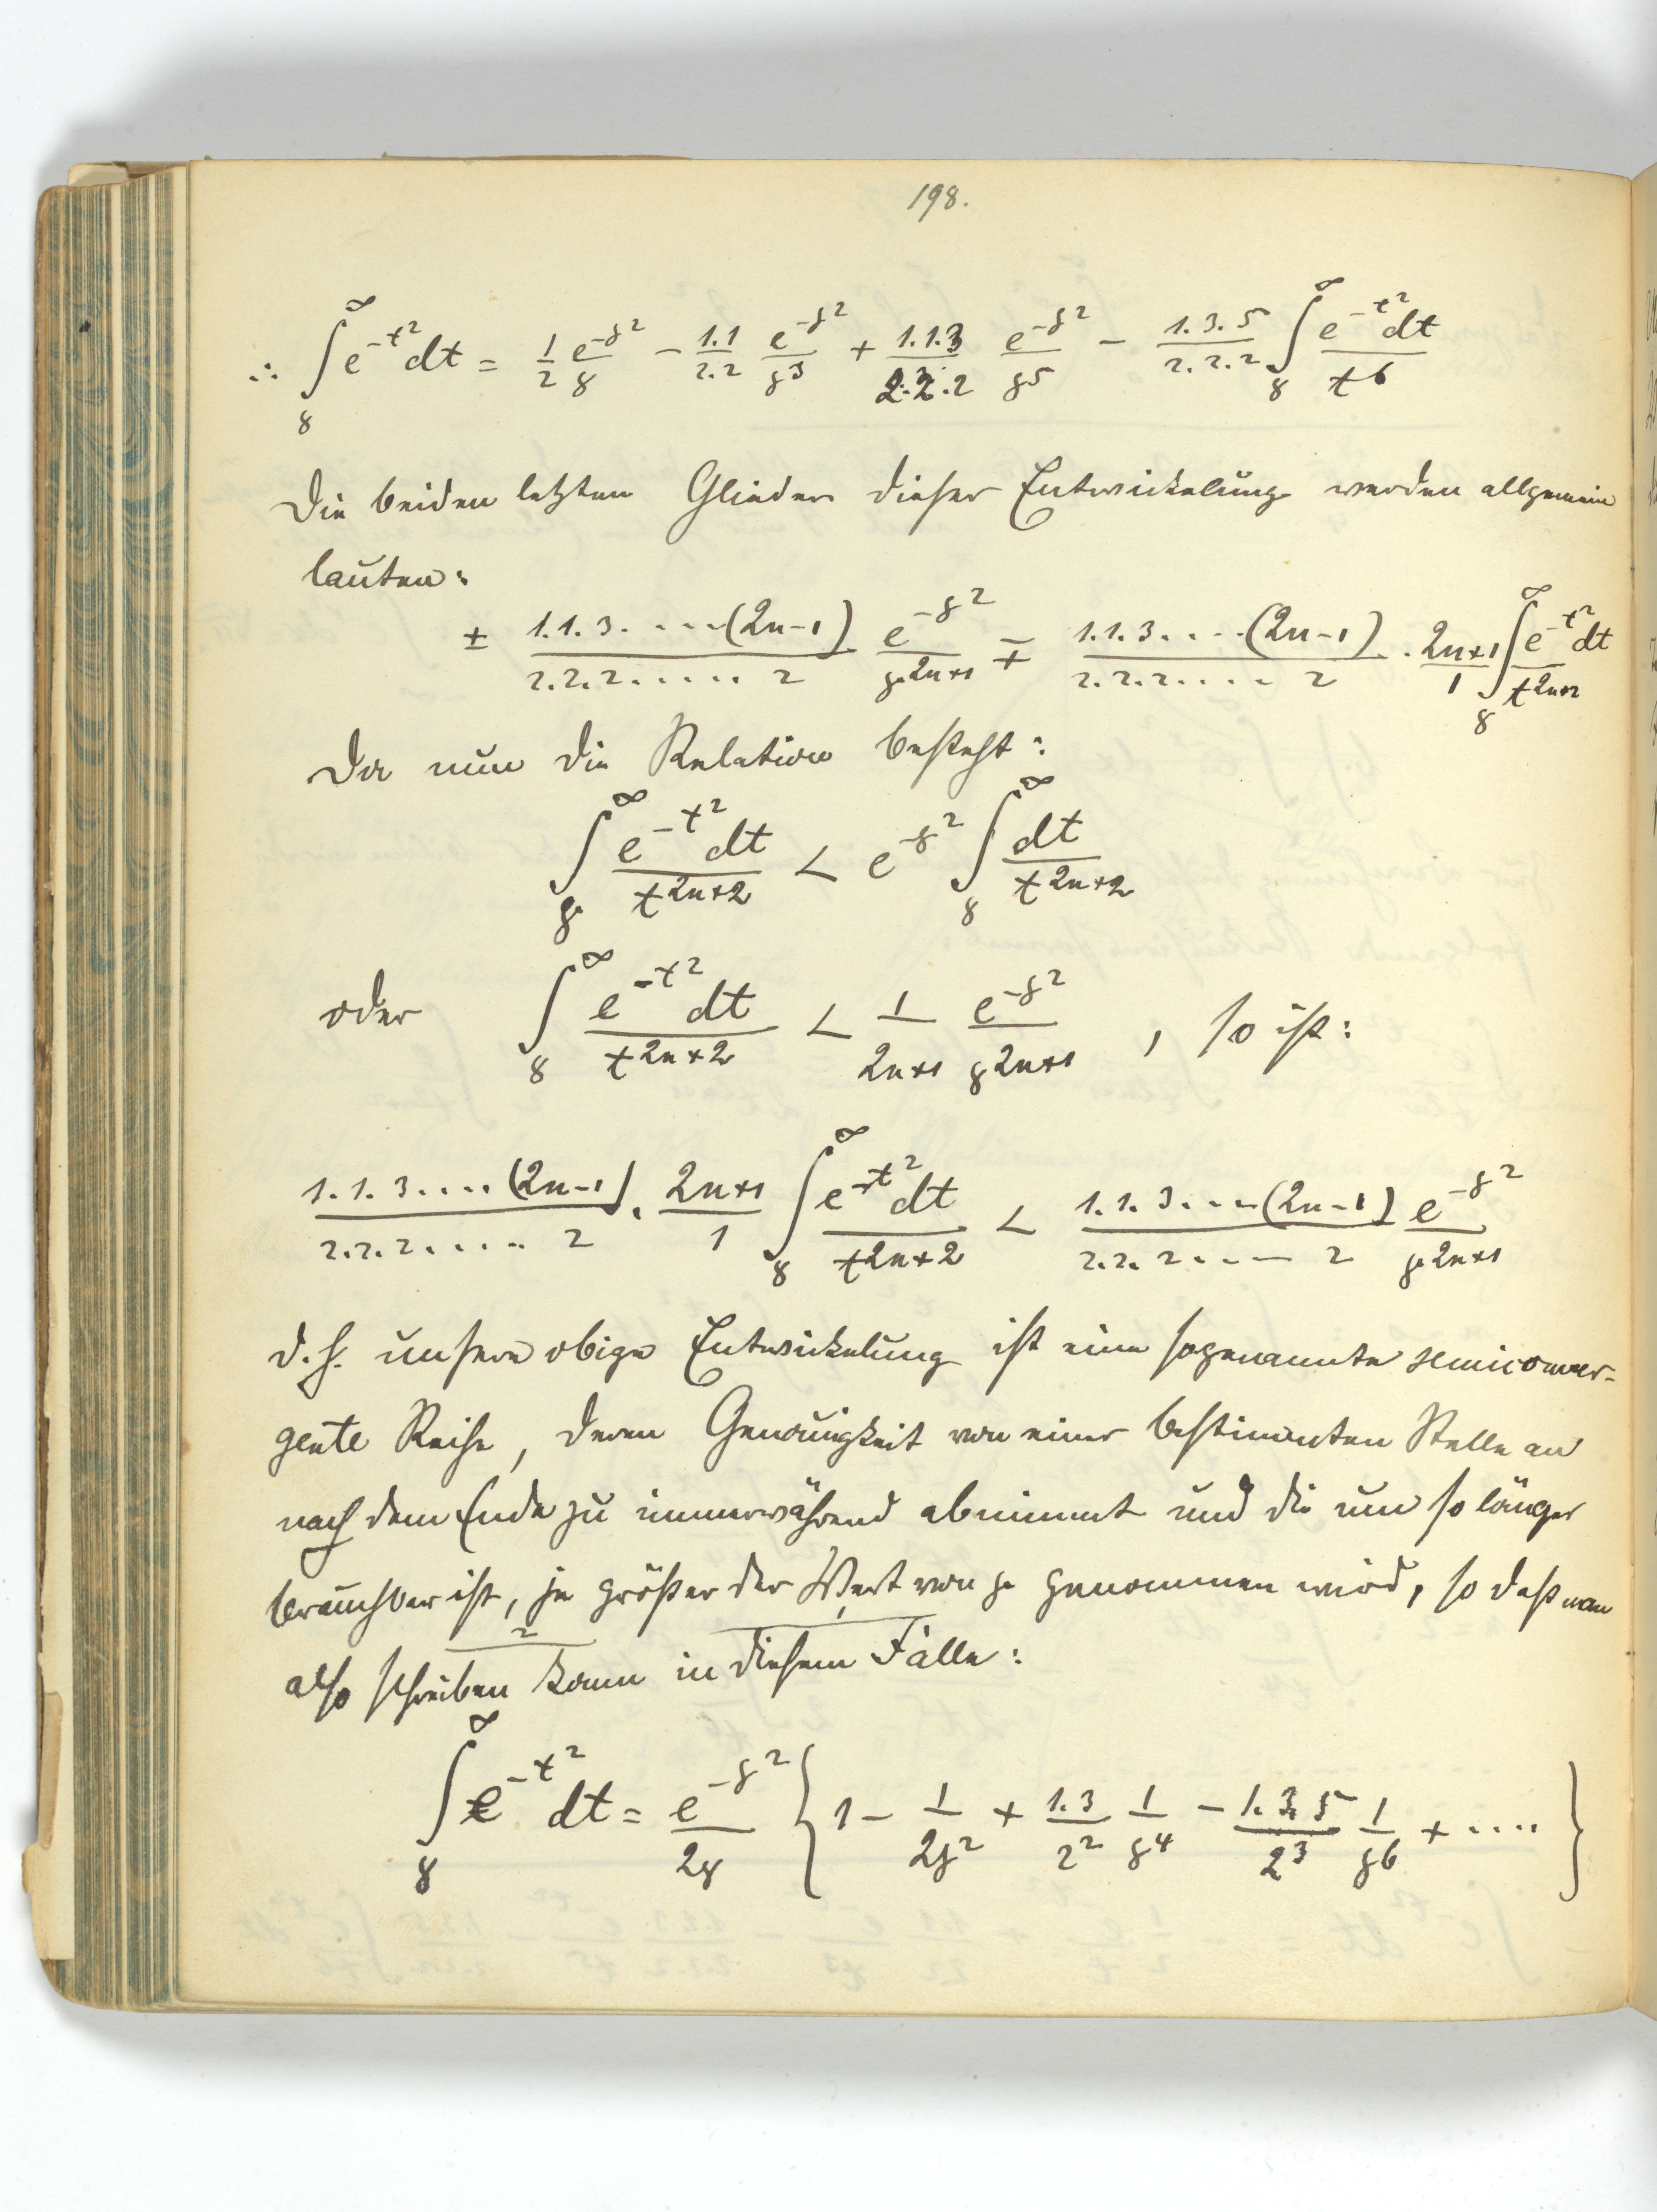 198.
∴ ∫_γ^∞ e^{-t²} dt = 1/2 e^{-γ²}/γ − 1.1/2.2 e^{-γ²}/γ³ + 1.1.3/2.2.2 e^{-γ²}/γ⁵ − 1.3.5/2.2.2 ∫_γ^∞ e^{-t²}dt/t⁶
Die beiden letzten Glieder dieser Entwickelung werden allgemein
lauten:
± 1.1.3.....(2n-1)/2.2.2......2 e^{-γ²}/γ^{2n+1} ∓ 1.1.3.....(2n-1)/2.2.2.....2 . 2n+1/1 ∫_γ^∞ e^{-t²}dt/t^{2n+2}
Da nun die Relation besteht:
∫_γ^∞ e^{-t²}dt/t^{2n+2} < e^{-γ²} ∫_γ^∞ dt/t^{2n+2}
oder ∫_γ^∞ e^{-t²}dt/t^{2n+2} < 1/2n+1 e^{-γ²}/γ^{2n+1} , so ist:
1.1.3.....(2n-1)/2.2.2......2 . 2n+1/1 ∫_γ^∞ e^{-t²}dt/t^{2n+2} < 1.1.3.....(2n-1)/2.2.2.....2 e^{-γ²}/γ^{2n+1}
d.h. unsere obige Entwickelung ist eine sogenannte semiconver-
gente Reihe, deren Genauigkeit von einer bestimmten Stelle an
nach dem Ende zu immerwährend abnimmt und die um so länger
brauchbar ist, je größer der Wert von γ genommen wird, so daß man
also schreiben kann in diesem Falle:
∫_γ^∞ e^{-t²} dt = e^{-γ²}/2γ {1 − 1/2γ² + 1.3/2² 1/γ⁴ − 1.3.5/2³ 1/γ⁶ + ....}